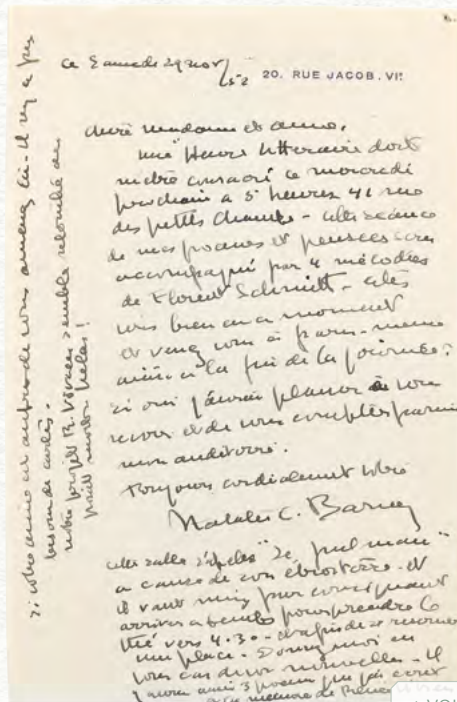 ce Samedi 29 nov / 52
20. RUE JACOB. VIᵉ
chère madame et amie,
une "Heure littéraire doit
m'être consacré ce mercredi
prochain à 5 heures 41 rue
des petits champs - cette séance
de mes poemes et pensées sera
accompagné par 4 mélodies
de Florent Schmitt - êtes
vous bien en ce moment
et venez vous à paris - meme
à la fin de la journée?
si oui j'aurai plaisir à vous
revoir et de vous compter parmi
mon auditoire.
Toujours cordialement votre
Natalie C. Barney
cette salle s'appelle "Le pulman"
a cause de son étroitesse - et
il vaut mieux par conséquent
arriver à temps pour prendre le
thé vers 4.30 - et afin de
une place - Donnez moi en
tous cas de vos nouvelles - Il
y aura aussi 3 poemes
à la mémoire de Renée
si votre amie est auprès de vous amenez la - Il n'y a pas
besoin de cartes -
notre projet R. Vivien semble
hélas!